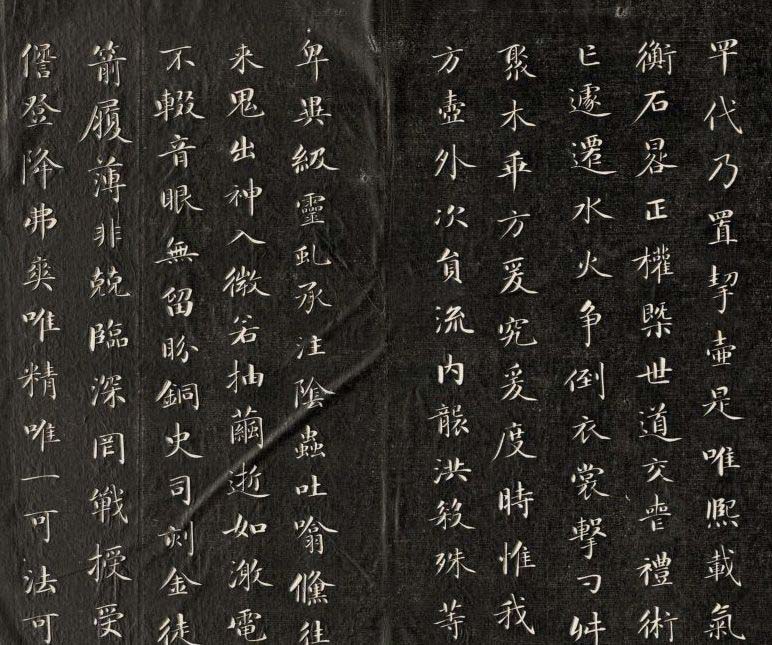 罕代乃置挈壺是唯熙載氣
衡石晷正權槩世道交喪禮術
亡遽遷水火争倒衣裳擊刁舛
聚木乖方爰究爰度時惟我
方壺外次員流内襲洪殺殊等
卑異級靈虬承注陰蟲吐噏儵往
来鬼出神入微若抽繭逝如激電
不輟音眼無留盼銅史司刻金徒
箭履薄非兢臨深罔戰授受
登降弗爽唯精唯一可法可